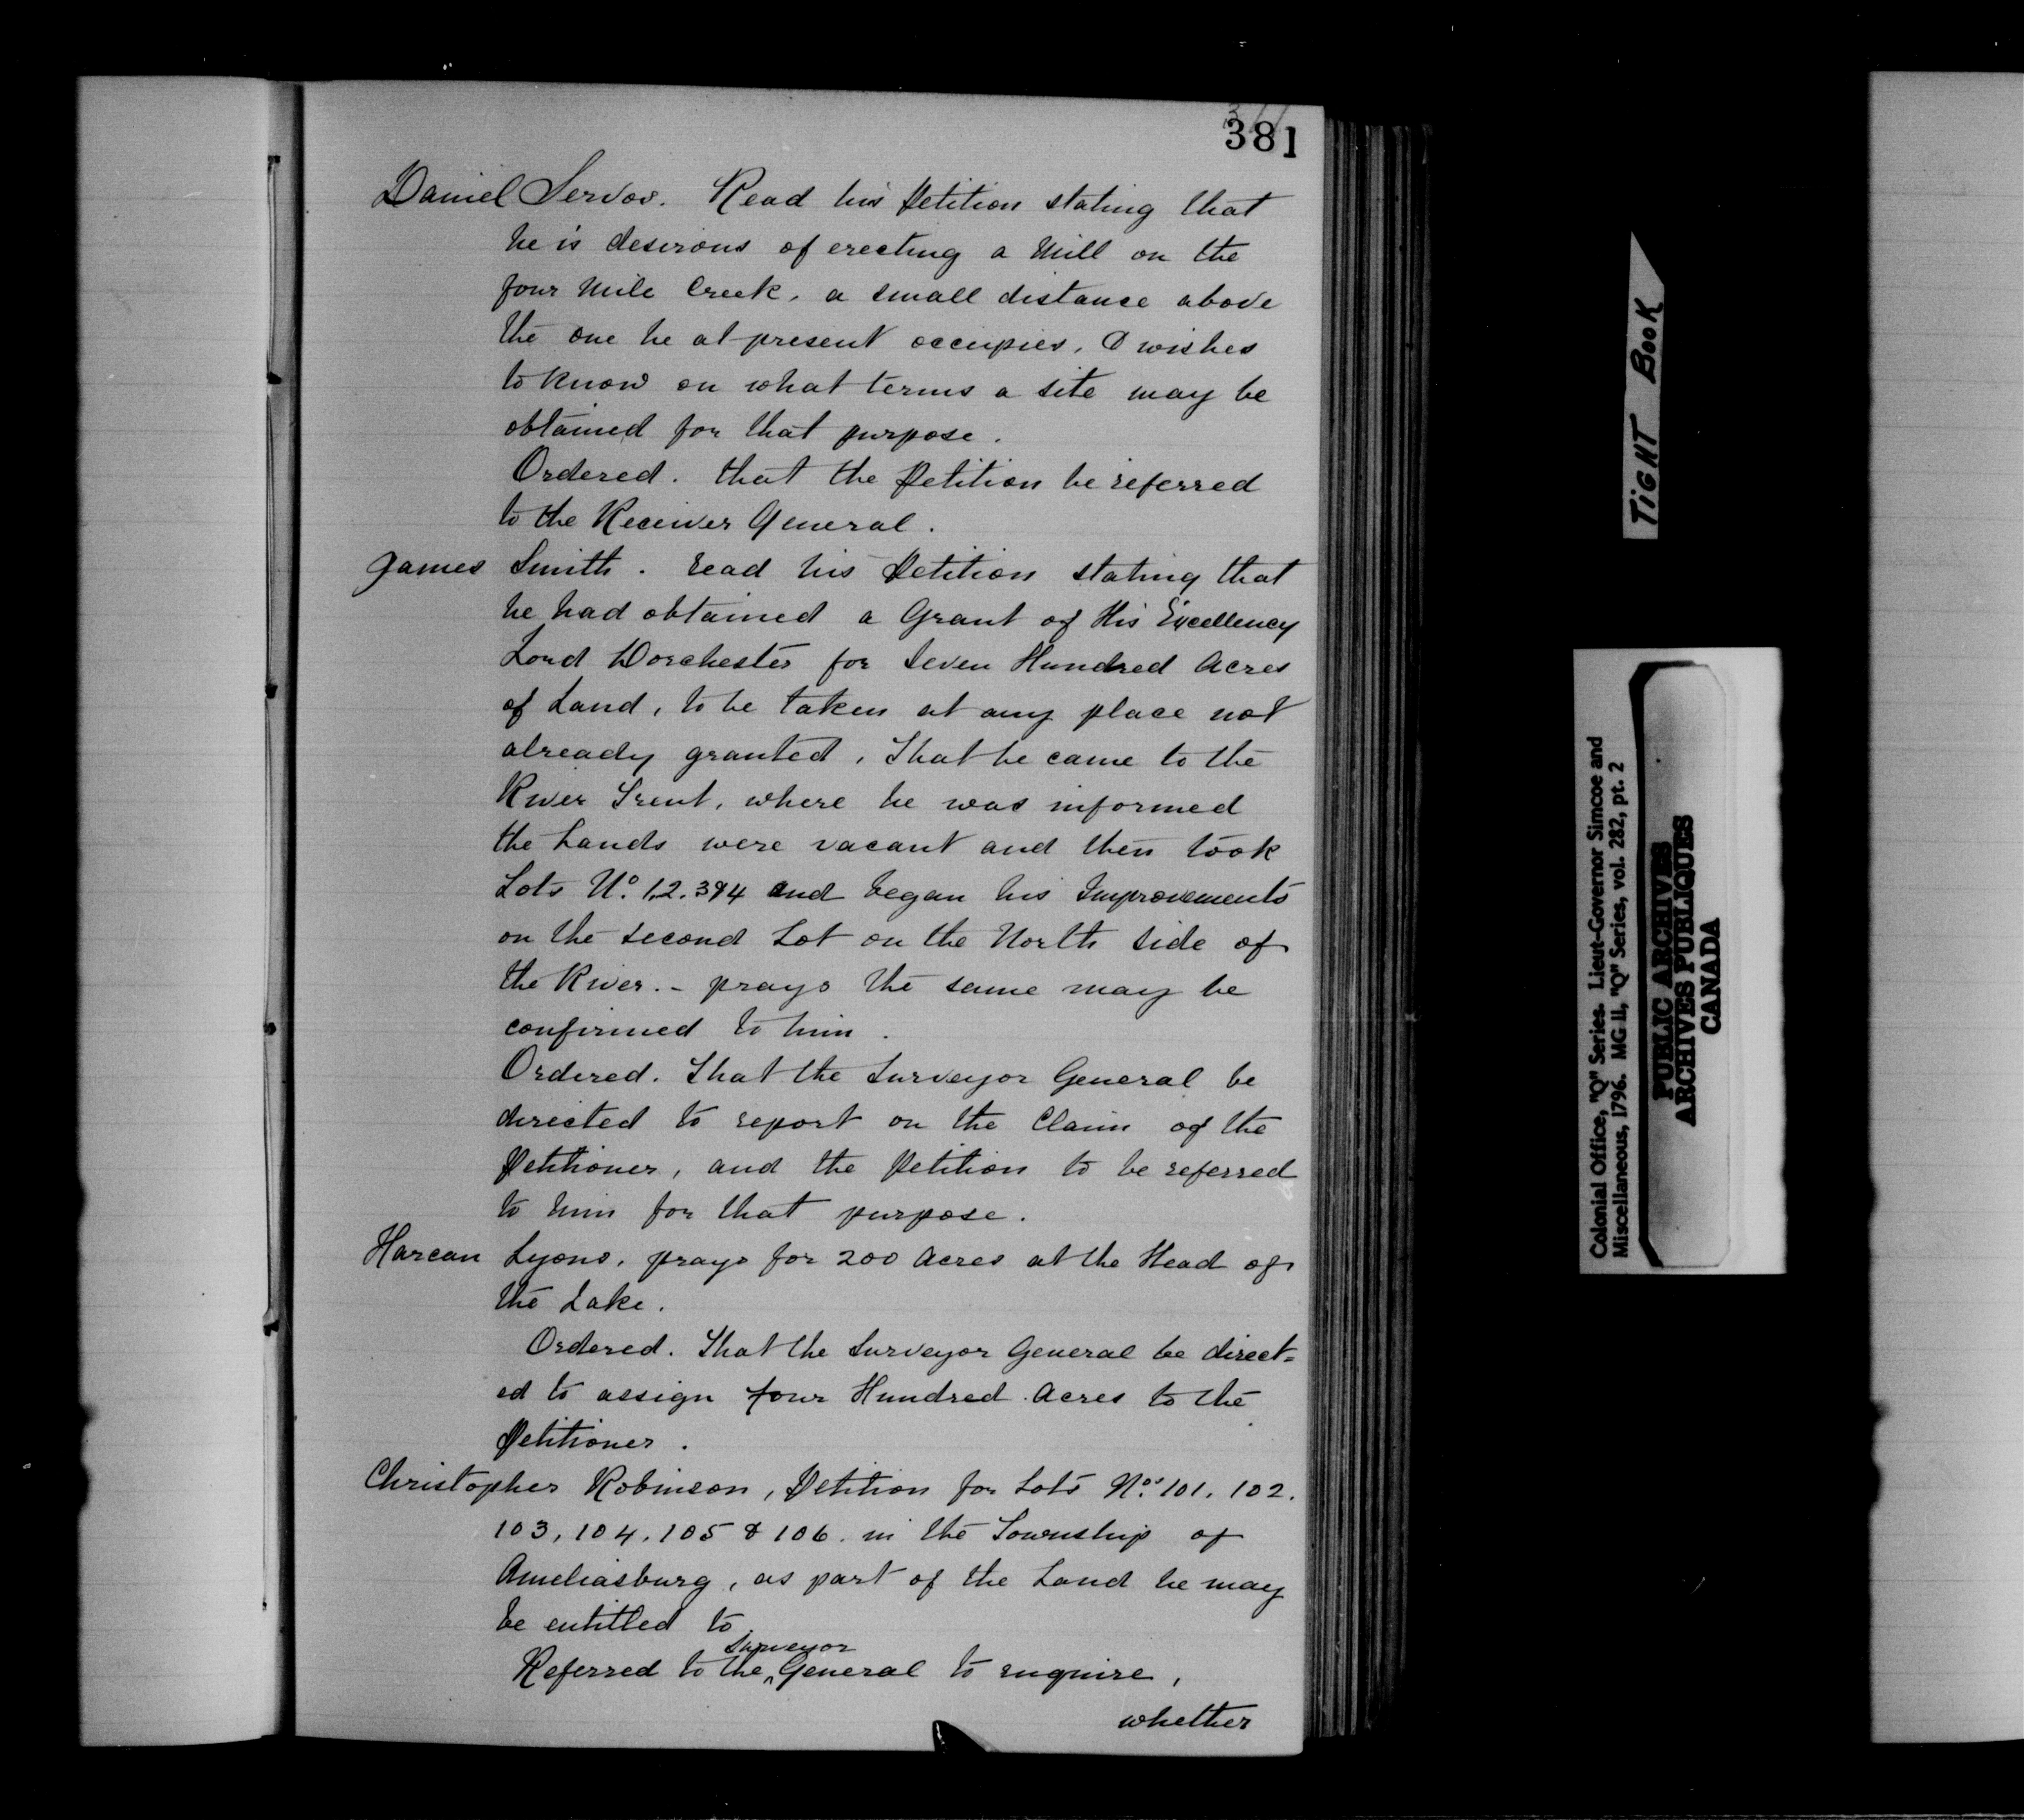 381
Daniel Servos. Read his Petition stating that
he is desirous of erecting a Mill on the
four Mile Creek, a small distance above
the one he at present occupies, & wishes
to know on what terms a site may be
obtained for that purpose.
Ordered. that the Petition be referred
to the Receiver General.
James Smith. read his Petition stating that
he had obtained a Grant of His Excellency
Lord Dorchester for Seven Hundred Acres
of Land, to be taken at any place not
already granted, That he came to the
River Trent, where he was informed
the Lands were vacant and then took
Lots No. 1,2.3&4 and began his Improvements
on the second Lot on the North side of
the River. - prays the same may be
confirmed to him.
Ordered. That the Surveyor General be
directed to report on the Claim of the
Petitioner, and the Petition to be referred
to him for that purpose.
Harcan Lyons, prays for 200 Acres at the Head of
the Lake.
Ordered. That the Surveyor General be direct=
ed to assign four Hundred Acres to the
Petitioner.
Christopher Robinson, Petition for Lots Nos. 101. 102.
103, 104, 105 & 106. in the Township of
Ameliasburg, as part of the Land he may
be entitled to.
Surveyor
Referred to the ^ General to enquire,
whether
TIGHT BOOK
Colonial Office, "Q" Series. Lieut-Governor Simcoe and
Miscellaneous, 1796. MG 11, "Q" Series, vol. 282, pt. 2
PUBLIC ARCHIVES
ARCHIVES PUBLIQUES
CANADA